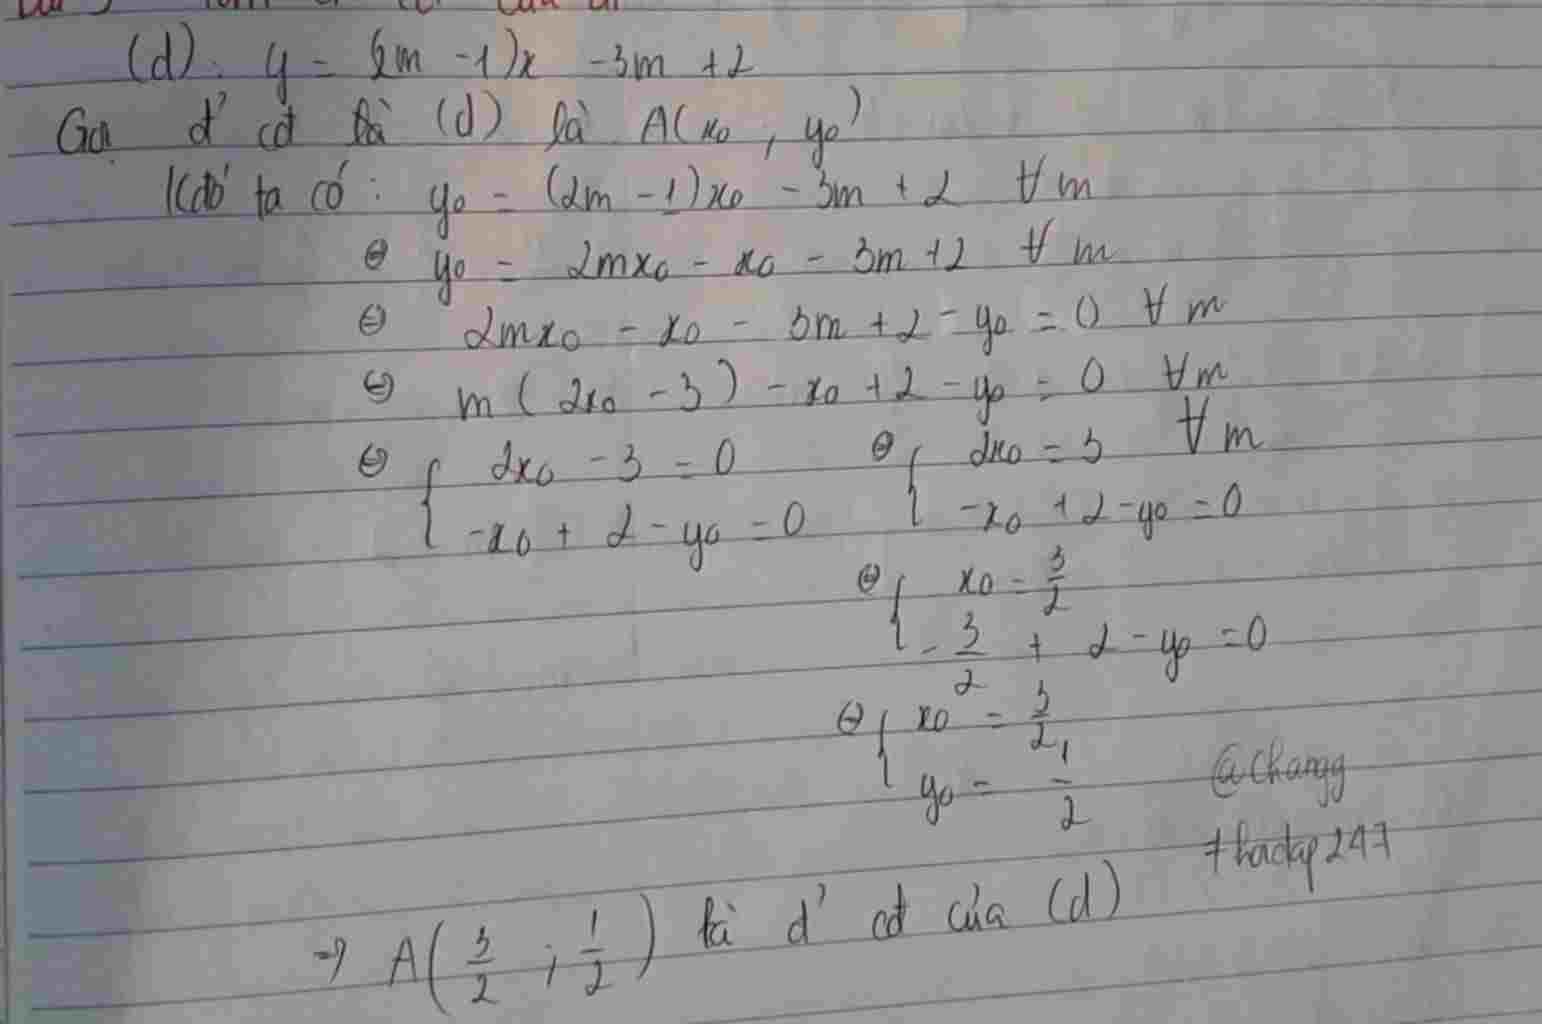 (d): y = (2m - 1)x - 3m + 2
Gọi đ' cđ là (d) là A(x₀, y₀)
Kđó ta có: y₀ = (2m - 1)x₀ - 3m + 2 ∀ m
⇔ y₀ = 2mx₀ - x₀ - 3m + 2 ∀ m
⇔ 2mx₀ - x₀ - 3m + 2 - y₀ = 0 ∀ m
⇔ m(2x₀ - 3) - x₀ + 2 - y₀ = 0 ∀ m
⇔ { 2x₀ - 3 = 0 ⇔ { 2x₀ = 3 ∀ m
-x₀ + 2 - y₀ = 0 -x₀ + 2 - y₀ = 0
⇔ { x₀ = 3/2
-3/2 + 2 - y₀ = 0
⇔ { x₀ = 3/2
y₀ = 1/2
@changg
#hoidap247
⇒ A(3/2 ; 1/2) là đ' cđ của (d)